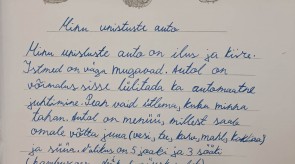 Minu unistuste auto
Minu unistuste auto on ilus ja kiire.
Istmed on väga mugavad. Autol on
võimalus sisse lülitada ka automaatne
juhtimine. Pean vaid ütlema, kuhu minna
tahan. Autol on menüü, millest saab
omale võtta juua (vesi, tee, kohv, mahl, kakao)
ja süüa. Valikus on 5 jooki ja 3 sööki